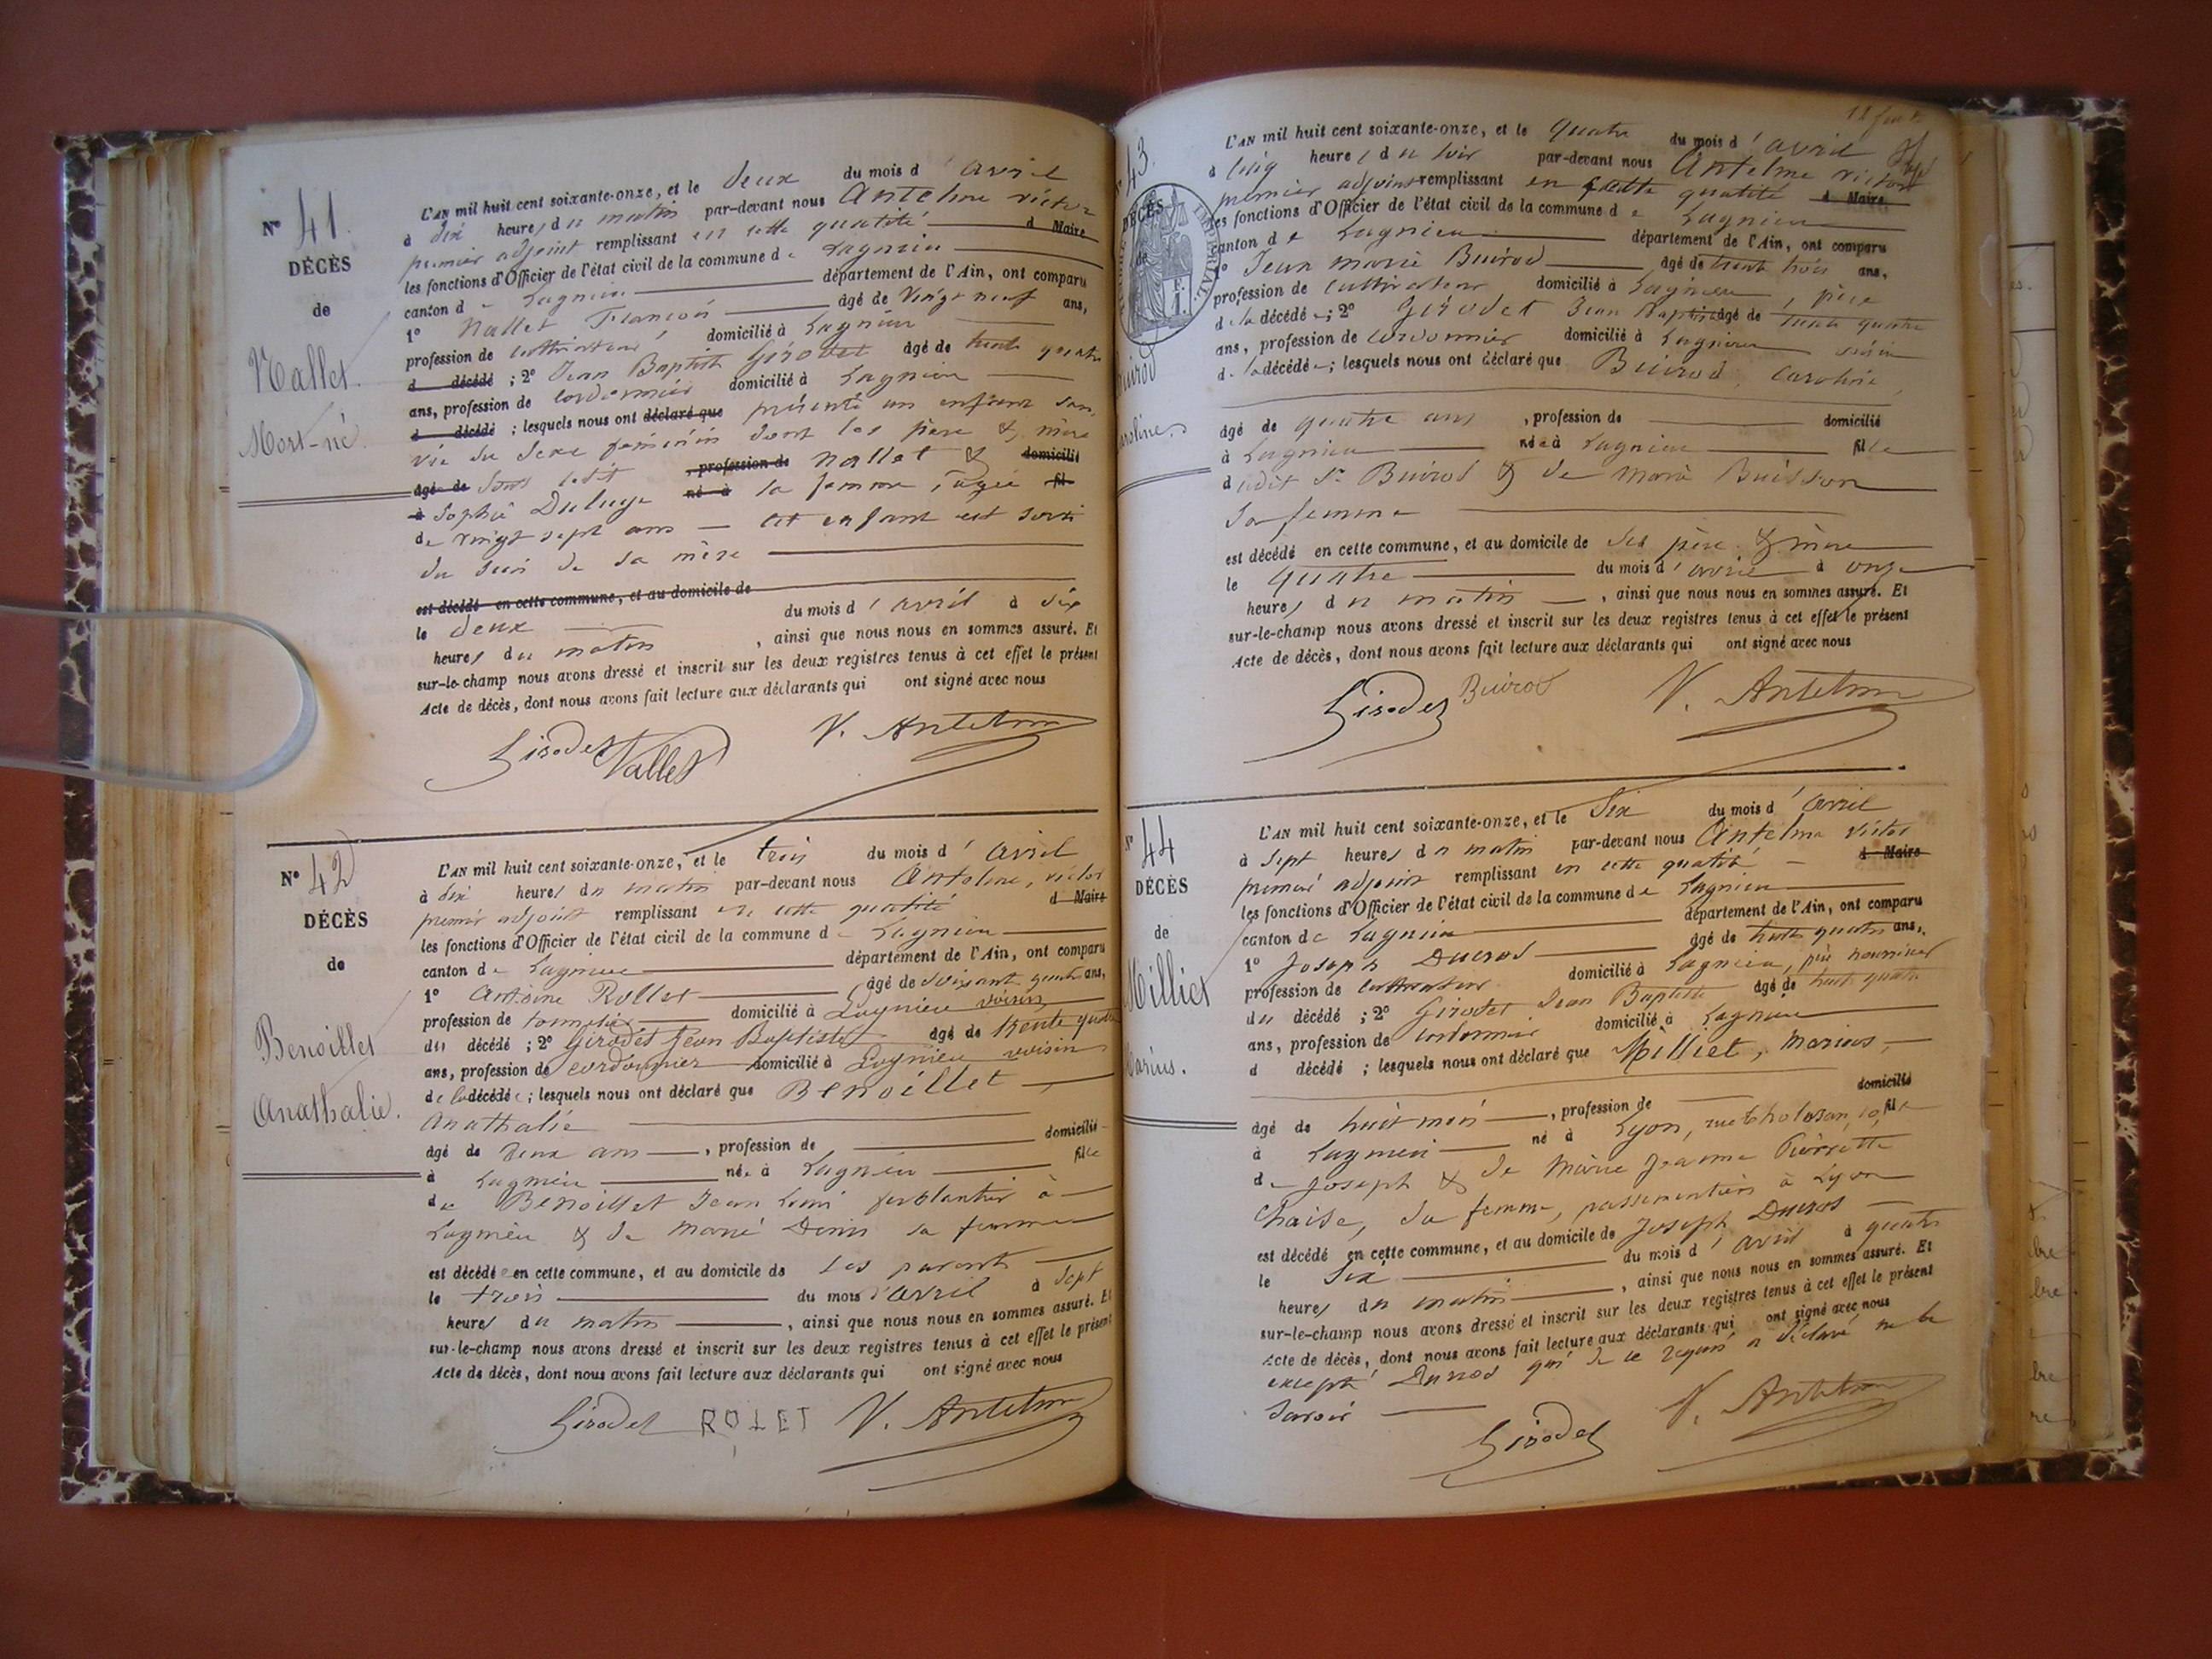 N° 41.
DÉCÈS
de
Nallet
Mort-né
L'AN mil huit cent soixante-onze, et le deux du mois d'avril
à dix heures du matin par-devant nous Antelme victor
premier adjoint remplissant en cette qualité d Maire
les fonctions d'Officier de l'état civil de la commune de Lagnieu
canton de Lagnieu département de l'Ain, ont comparu
1° Nallet François âgé de vingt neuf ans,
profession de cultivateur domicilié à Lagnieu
d décédé ; 2° Jean Baptiste Girodet âgé de trente quatre
ans, profession de cordonnier domicilié à Lagnieu
d décédé ; lesquels nous ont déclaré que présenté un enfant sans
vie du sexe féminin dont les père & mère
âgé de sont ledit , profession de Nallet & domicilié
à Sophie né à la femme, âgée fil
de vingt sept ans — cet enfant est sorti
du sein de sa mère
est décédé en cette commune, et au domicile de
le deux du mois d'avril à dix
heures du matin , ainsi que nous nous en sommes assuré. Et
sur-le-champ nous avons dressé et inscrit sur les deux registres tenus à cet effet le présent
Acte de décès, dont nous avons fait lecture aux déclarants qui ont signé avec nous
Girodet Nallet V. Antelme
N° 42
DÉCÈS
de
Benoillet
Anathalie.
L'AN mil huit cent soixante-onze, et le trois du mois d'avril
à dix heures du matin par-devant nous Antelme, victor
premier adjoint remplissant en cette qualité d Maire
les fonctions d'Officier de l'état civil de la commune de Lagnieu
canton de Lagnieu département de l'Ain, ont comparu
1° Antoine Rollet âgé de soixante quatre ans,
profession de tonnelier domicilié à Lagnieu voisin
du décédé ; 2° Girodet Jean Baptiste âgé de trente quatre
ans, profession de cordonnier domicilié à Lagnieu voisin
de la décédée ; lesquels nous ont déclaré que Benoillet
Anathalie
âgé de deux ans , profession de domicilié
à Lagnieu née à Lagnieu fille
de Benoillet Jean Louis ferblantier à
Lagnieu & de Marie Denis sa femme
est décédée en cette commune, et au domicile de ses parents
le trois du mois d'avril à sept
heures du matin , ainsi que nous nous en sommes assuré. Et
sur-le-champ nous avons dressé et inscrit sur les deux registres tenus à cet effet le présent
Acte de décès, dont nous avons fait lecture aux déclarants qui ont signé avec nous
Girodet ROLET V. Antelme
43.
DÉCÈS
de
Buirod
Caroline.
L'AN mil huit cent soixante-onze, et le quatre du mois d'avril
à cinq heures du soir par-devant nous Antelme victor
premier adjoint remplissant en cette qualité d Maire
les fonctions d'Officier de l'état civil de la commune de Lagnieu
canton de Lagnieu département de l'Ain, ont comparu
1° Jean Marie Buirod âgé de trente trois ans,
profession de cultivateur domicilié à Lagnieu, père
de la décédée ; 2° Girodet Jean Baptiste âgé de trente quatre
ans, profession de cordonnier domicilié à Lagnieu voisin
de la décédée ; lesquels nous ont déclaré que Buirod Caroline
âgé de quatre ans , profession de domicilié
à Lagnieu née à Lagnieu fille
dudit Sr Buirod & de Marie Buisson
sa femme
est décédé en cette commune, et au domicile de ses père & mère
le quatre du mois d'avril à onze
heures du matin , ainsi que nous nous en sommes assuré. Et
sur-le-champ nous avons dressé et inscrit sur les deux registres tenus à cet effet le présent
Acte de décès, dont nous avons fait lecture aux déclarants qui ont signé avec nous
Girodet Buirod V. Antelme
N° 44
DÉCÈS
de
Milliet
Marius.
L'AN mil huit cent soixante-onze, et le six du mois d'avril
à sept heures du matin par-devant nous Antelme victor
premier adjoint remplissant en cette qualité d Maire
les fonctions d'Officier de l'état civil de la commune de Lagnieu
canton de Lagnieu département de l'Ain, ont comparu
1° Joseph Ducros âgé de trente quatre ans,
profession de cultivateur domicilié à Lagnieu, père nourricier
du décédé ; 2° Girodet Jean Baptiste âgé de trente quatre
ans, profession de cordonnier domicilié à Lagnieu
d décédé ; lesquels nous ont déclaré que Milliet, Marius,
âgé de huit mois , profession de domicilié
à Lagnieu né à Lyon, rue tholosan, fils
de Joseph & de Marie Jeanne Pierrette
Chaise, sa femme, passementiers à Lyon
est décédé en cette commune, et au domicile de Joseph Ducros
le six du mois d'avril à quatre
heures du matin , ainsi que nous nous en sommes assuré. Et
sur-le-champ nous avons dressé et inscrit sur les deux registres tenus à cet effet le présent
Acte de décès, dont nous avons fait lecture aux déclarants qui ont signé avec nous
excepté Ducros qui de ce requis a déclaré ne le
savoir
Girodet V. Antelme